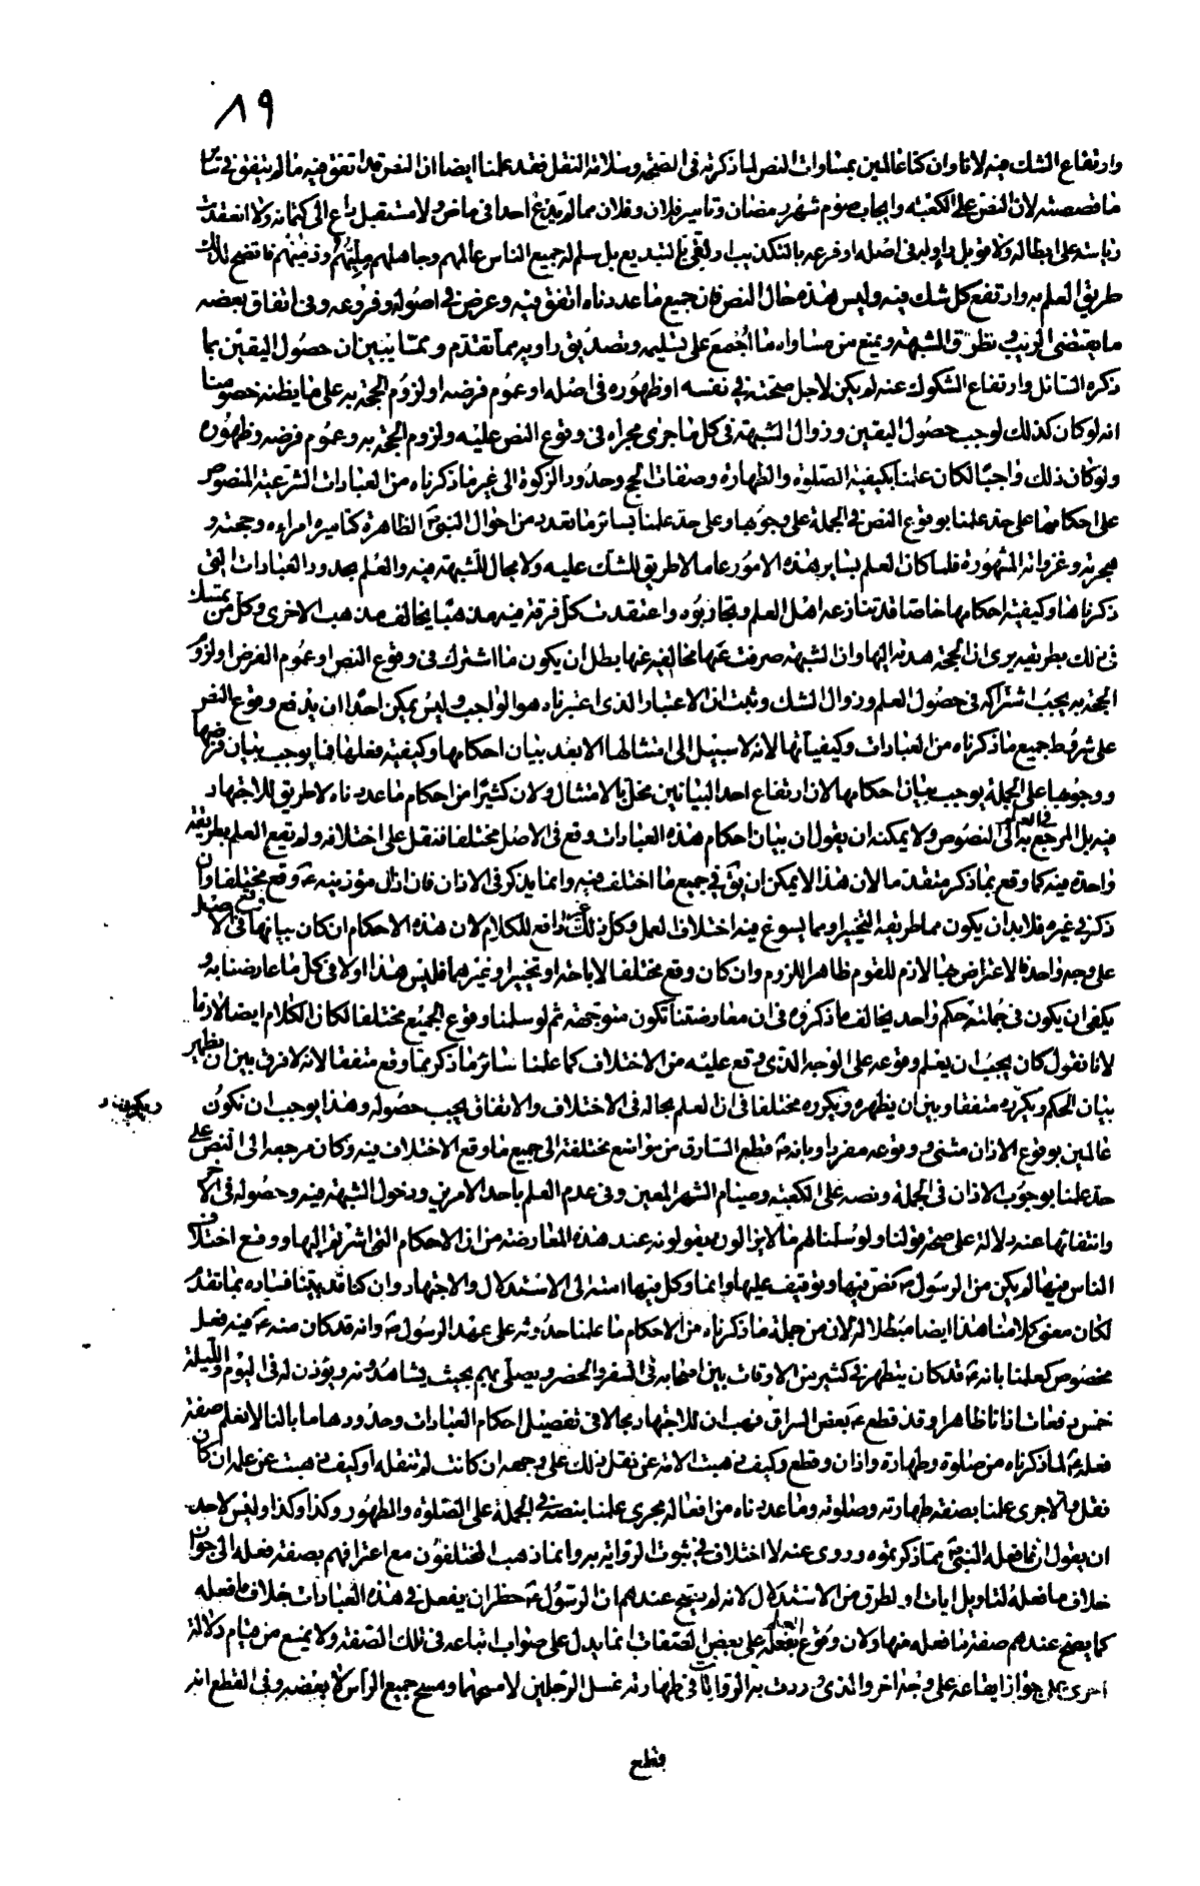 ٨٩
وارتفاع الشك فيه لانا وان كنا عالمين بمساوات النص لما ذكرته في الصحة وسلامة النقل فقد علمنا ايضا ان النص قد اتفق فيه ما لم يتفق في سائر
ما قصصته لان النص على الكعبة وايجاب صوم شهر رمضان وتامير فلان وفلان مما لم يدع احدا في ماض ولا مستقبل داع الى كتمانه ولا انعقدت
رياسة على ابطاله ولا قوبل راويه في اصله او فرعه بالتكذيب او لقي بالتبديع بل سلم له جميع الناس عالمهم وجاهلهم مليهم وذميهم فاتضح لذلك
طريق العلم به وارتفع كل شك فيه وليس هذه حال النص فان جميع ما عددناه اتفق فيه وعرض في اصوله وفروعه وفي اتفاق بعضه
ما يقتضى الريب وتطرق الشبهة ويمنع من مساواه ما أجمع على تسليمه وتصديق راويه مما تقدم ومما يبين ان حصول اليقين بما
ذكره السائل وارتفاع الشكوك عنه لم يكن لاجل صحته في نفسه او ظهوره في اصله او عموم فرضه او لزوم الحجة به على ما يظنه خصومنا
انه لو كان كذلك لوجب حصول اليقين وزوال الشبهة في كل ما جرى مجراه في وقوع النص عليه ولزوم الحجة به وعموم فرضه وظهوره
ولو كان ذلك واجبا لكان علمنا بكيفية الصلوة والطهارة وصفات الحج وحدود الزكوة الى غير ما ذكرناه من العبادات الشرعية المنصوص
على احكامها على حد علمنا بوقوع النص في الجملة على وجوبها وعلى حد علمنا بسائر ما تعدد من احوال النبي ص الظاهرة كتاميره امراءه وحجته و
هجرته وغزواته المشهورة فلما كان العلم بسائر هذه الامور عاما لا طريق للشك عليه ولا مجال للشبهة فيه والعلم بحدود العبادات التي
ذكرناها وكيفية احكامها خاصا قد تنازعه اهل العلم وتجاذبوه واعتقدت كل فرقة فيه مذهبا يخالف مذهب الاخرى وكل من يمسك
في ذلك بطريقه يرى ان الحجة هدته اليها وان الشبهة صرفت عنها مخالفيه عنها بطل ان يكون ما اشترك في وقوع النص او عموم الفرض او لزوم
الحجة به يجب اشتراكه في حصول العلم وزوال الشك وثبت ان الاعتبار الذي اعتبرناه هو الواجب وليس يمكن احدا ان يدفع وقوع النص
على شروط جميع ما ذكرناه من العبادات وكيفياتها لانه لا سبيل الى امتثالها الا بعد بيان احكامها وكيفية فعلها فما يوجب بيان فرضها
ووجوبها على الجملة يوجب بيان احكامها لان ارتفاع احد البيانين مخل بالامتثال ولان كثيرا من احكام ما عددناه لا طريق للاجتهاد
فيه بل المرجع به في العلم الى النصوص ولا يمكنه ان يقول ان بيان احكام هذه العبادات وقع في الاصل مختلفا فنقل على اختلافه ولم يقع العلم بطريقة
واحدة فيه كما وقع بما ذكر متقدما لان هذا لا يمكن ان يق في جميع ما اختلف فيه وانما يذكر في الاذان فان اذان مؤذنيه ع وقع مختلفا وان
ذكر في غيره فلا بد ان يكون مما طريقه التخيير او مما يسوغ فيه اختلاف العمل وكل ذلك غير دافع للكلام لان هذه الاحكام ان كان بيانها وقع في الاصل
على وجه واحد فالاعتراض بها لازم للقوم ظاهر اللزوم وان كان وقع مختلفا لاباحة او تخيير او غيرهما فليس هذا اولا في كل ما عارضنا به و
يكفي ان يكون في جملته حكم واحد يخالف ما ذكروه في ان معارضتنا تكون متوجهة ثم لو سلمنا وقوع الجميع مختلفا لكان الكلام ايضا لازما
لانا نقول كان يجب ان يعلم وقوعه على الوجه الذي وقع عليه من الاختلاف كما علمنا سائر ما ذكر مما وقع متفقا لانه لا فرق بين ان يظهر
بيان الحكم ويكرره متفقا وبين ان يظهره ويكرره مختلفا في ان العلم بحاله في الاختلاف والاتفاق يجب حصوله وهذا يوجب ان نكون
عالمين بوقوع الاذان مثنى ووقوعه مفردا وبانه ص قطع السارق من مواضع مختلفة الى جميع ما وقع الاختلاف فيه وكان مرجعه الى النص على
حد علمنا بوجوب الاذان في الجملة ونصه على الكعبة وصيام الشهر المعين وفي عدم العلم باحد الامرين ودخول الشبهة فيه وحصوله في الاخر
وانتفائها عنه دلالة على صحة قولنا ولو سلمنا لهم ما لا يزالون يقولونه عند هذه المعارضة من ان الاحكام التي اشرتم اليها ووقع اختلاف
الناس فيها لم يكن من الرسول ص نص فيها وتوقيف عليها وانما وكل فيها امته الى الاستدلال والاجتهاد وان كنا قد بينا فساده بما تقدم
لكان معنى كلامنا هذا ايضا مبطلا له لان من جملة ما ذكرناه من الاحكام ما علمنا حدوثه على عهد الرسول ص وانه قد كان منه ع فيه فعل
مخصوص كعلمنا بانه ع قد كان يتطهر في كثير من الاوقات بين اصحابه في السفر والحضر ويصلي بهم بحيث يشاهدونه ويؤذن له في اليوم والليلة
خمس دفعات اذانا ظاهرا وقد قطع ع بعض السراق فهب ان للاجتهاد مجالا في تفصيل احكام العبادات وحدودها ما بالنا لا نعلم صفة
فعله ع لما ذكرناه من صلوة وطهارة واذان وقطع وكيف ذهبت الامة عن نقل ذلك على وجهه ان كانت لم تنقله او كيف ذهبت عن علمه ان كان
نقل والا جرى علمنا بصفة طهارته وصلوته وما عددناه من افعاله مجرى علمنا بنصه في الجملة على الصلوة والطهور وكذا وكذا وليس لاحد
ان يقول ان ما فعله النبي ص مما ذكرتموه وروى عنه لا اختلاف في ثبوت الرواية به وانما ذهب المختلفون مع اعترافهم بصفة فعله الى جواز
خلاف ما فعله لتاويل ايات او لطرق من الاستدلال لانه لم يتضح عندهم ان الرسول ع حظر ان يفعل في هذه العبادات خلاف ما فعله
كما يصح عندهم صفة ما فعله منها ولان وقوع الفعل على بعض الصفات انما يدل على صواب اتباعه في تلك الصفة ولا يمنع من قيام دلالة
اخرى على جواز ايقاعه على وجه اخر والذي وردت به الروايات في طهارته غسل الرجلين لا مسحهما ومسح جميع الرأس لا بعضه وفي القطع انه
قطع